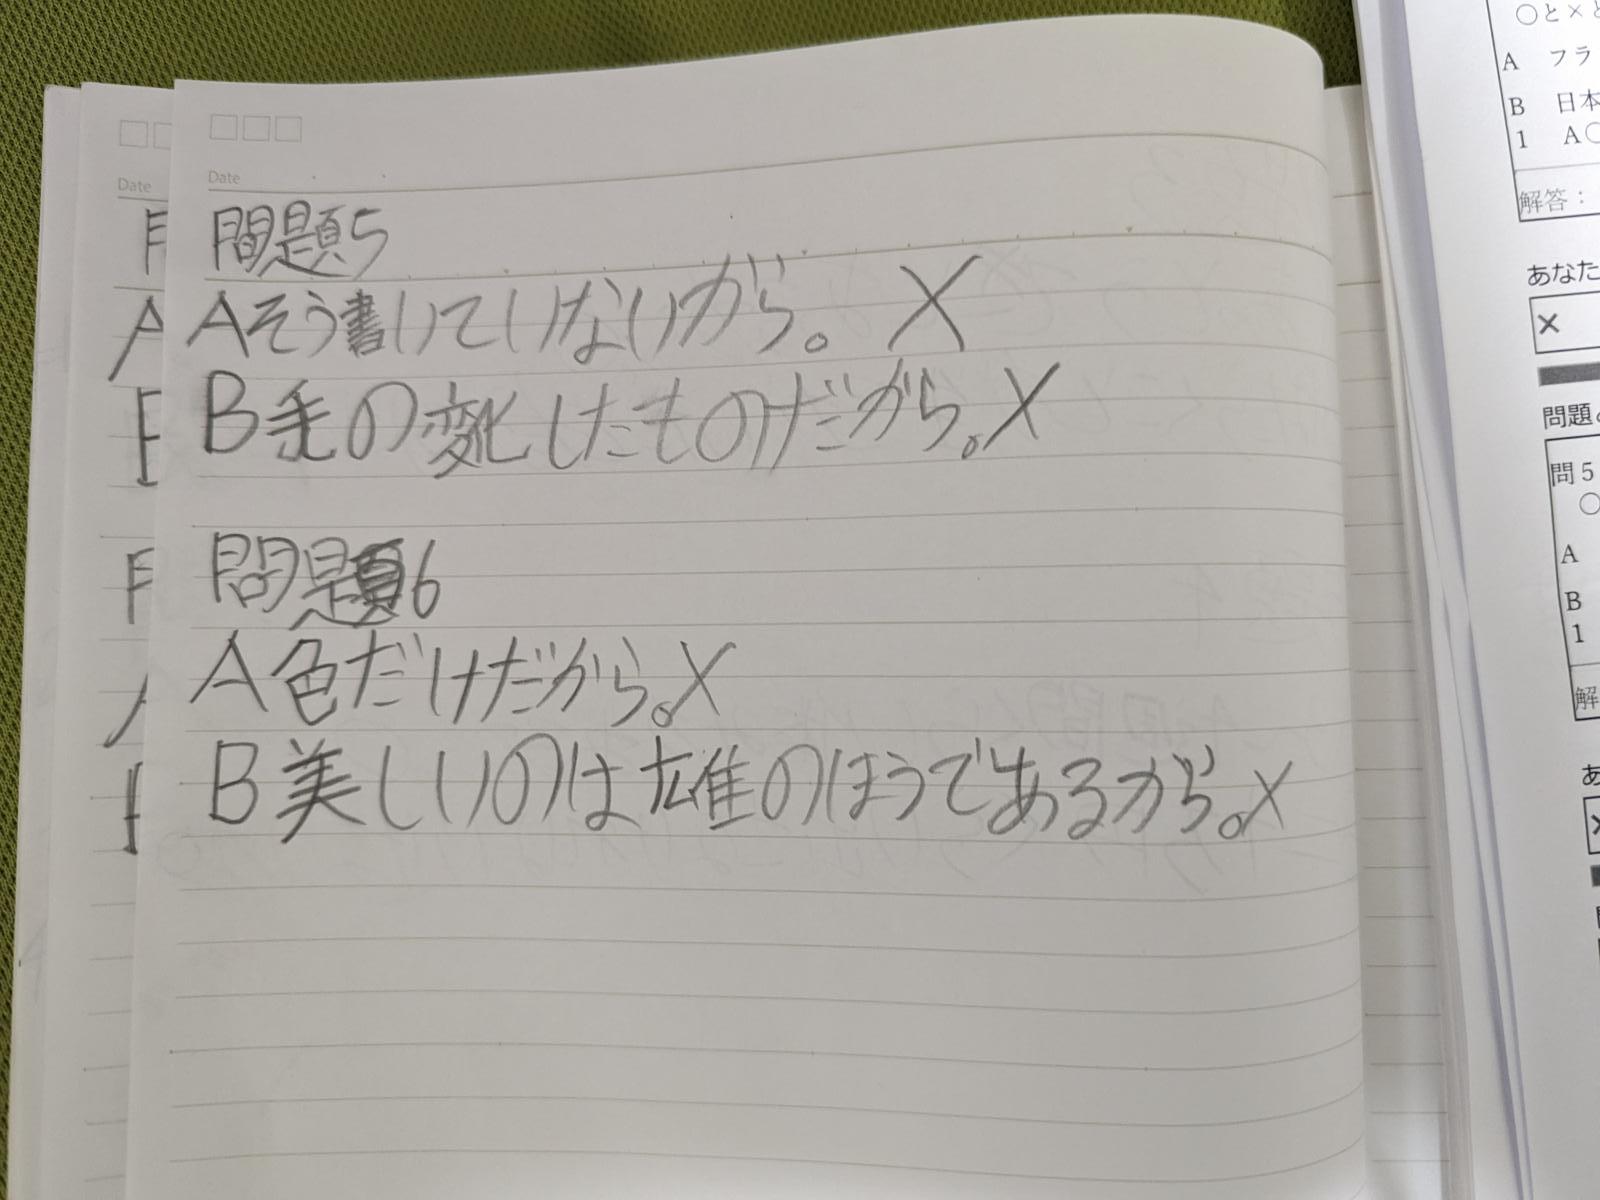 Date
Date
問題5
Aそう書いていないから。 ×
B毛の変化したものだから。×
問題6
A色だけだから。×
B美しいのは雄のほうであるから。×
○と×と
A フラ
B 日本
1 A○
解答：
あなた
×
問題
問5
○
A
B
1
解
あ